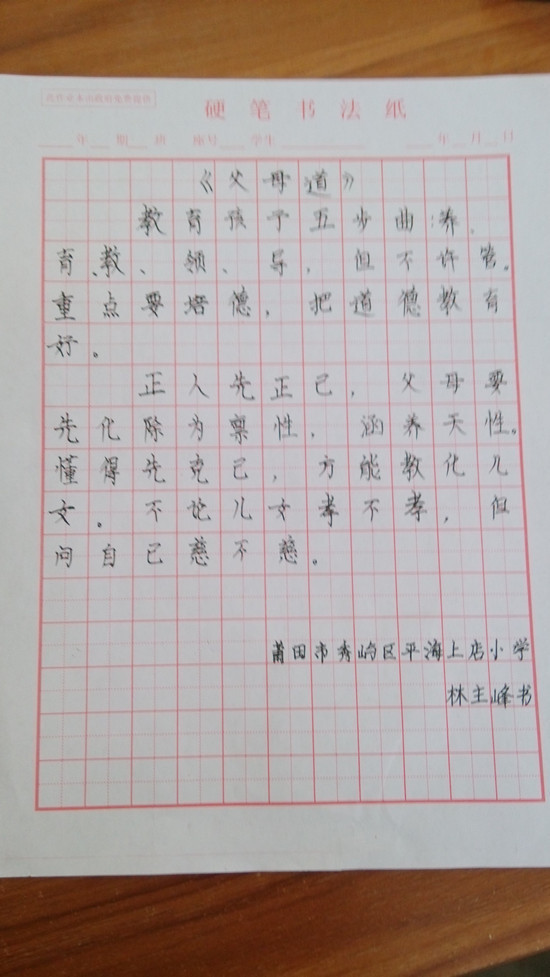 硬笔书法纸
年 期 班 座号 学生 年 月 日
《父母道》
教育孩子五步曲:养、
育、教、领、导,但不许管。
重点要培德,把道德教育
好。
正人先正己,父母要
先化除为禀性,涵养天性。
懂得先克己,方能教化儿
女。不论儿女孝不孝,但
问自己慈不慈。
莆田市秀屿区平海上店小学
林主峰书